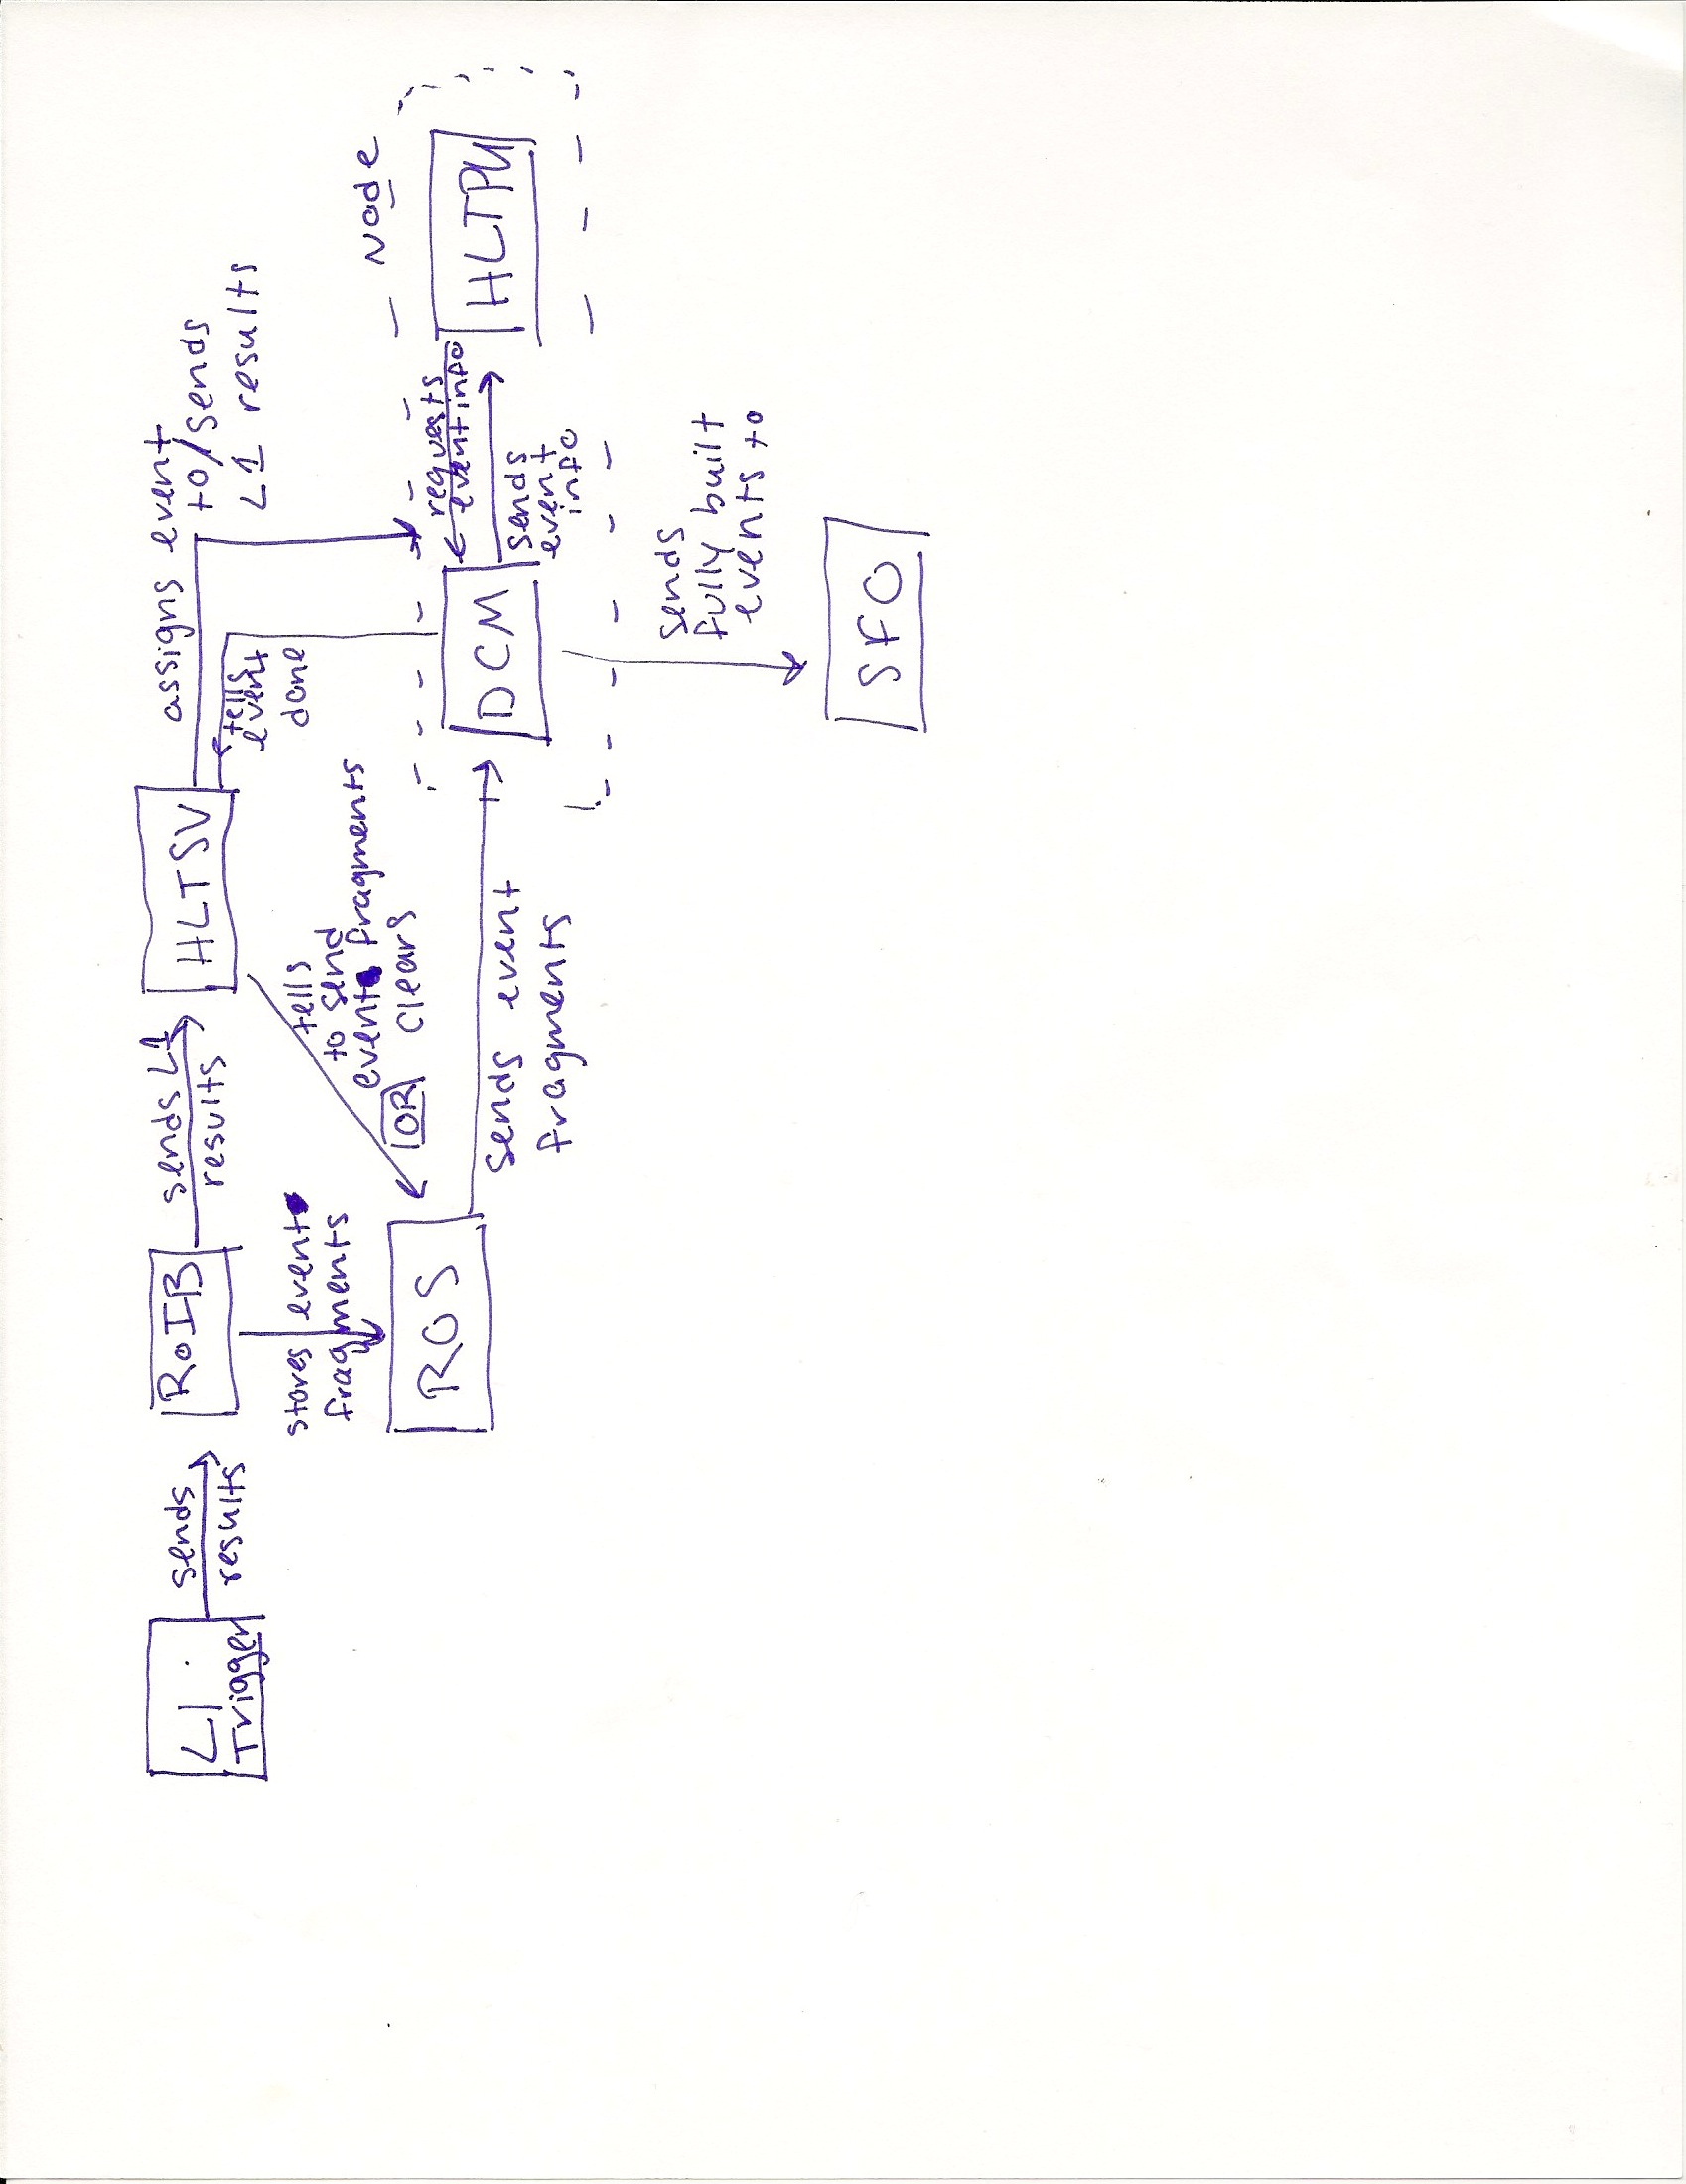 L1
Trigger
sends
results
RoIB
sends L1
results
HLTSV
assigns event
to/sends
L1 results
tells
event
done
Node
stores event
fragments
tells
to send
event fragments
OR clears
ROS
sends event
fragments
DCM
requests
event info
sends
event
info
HLTPU
sends
fully built
events to
SFO